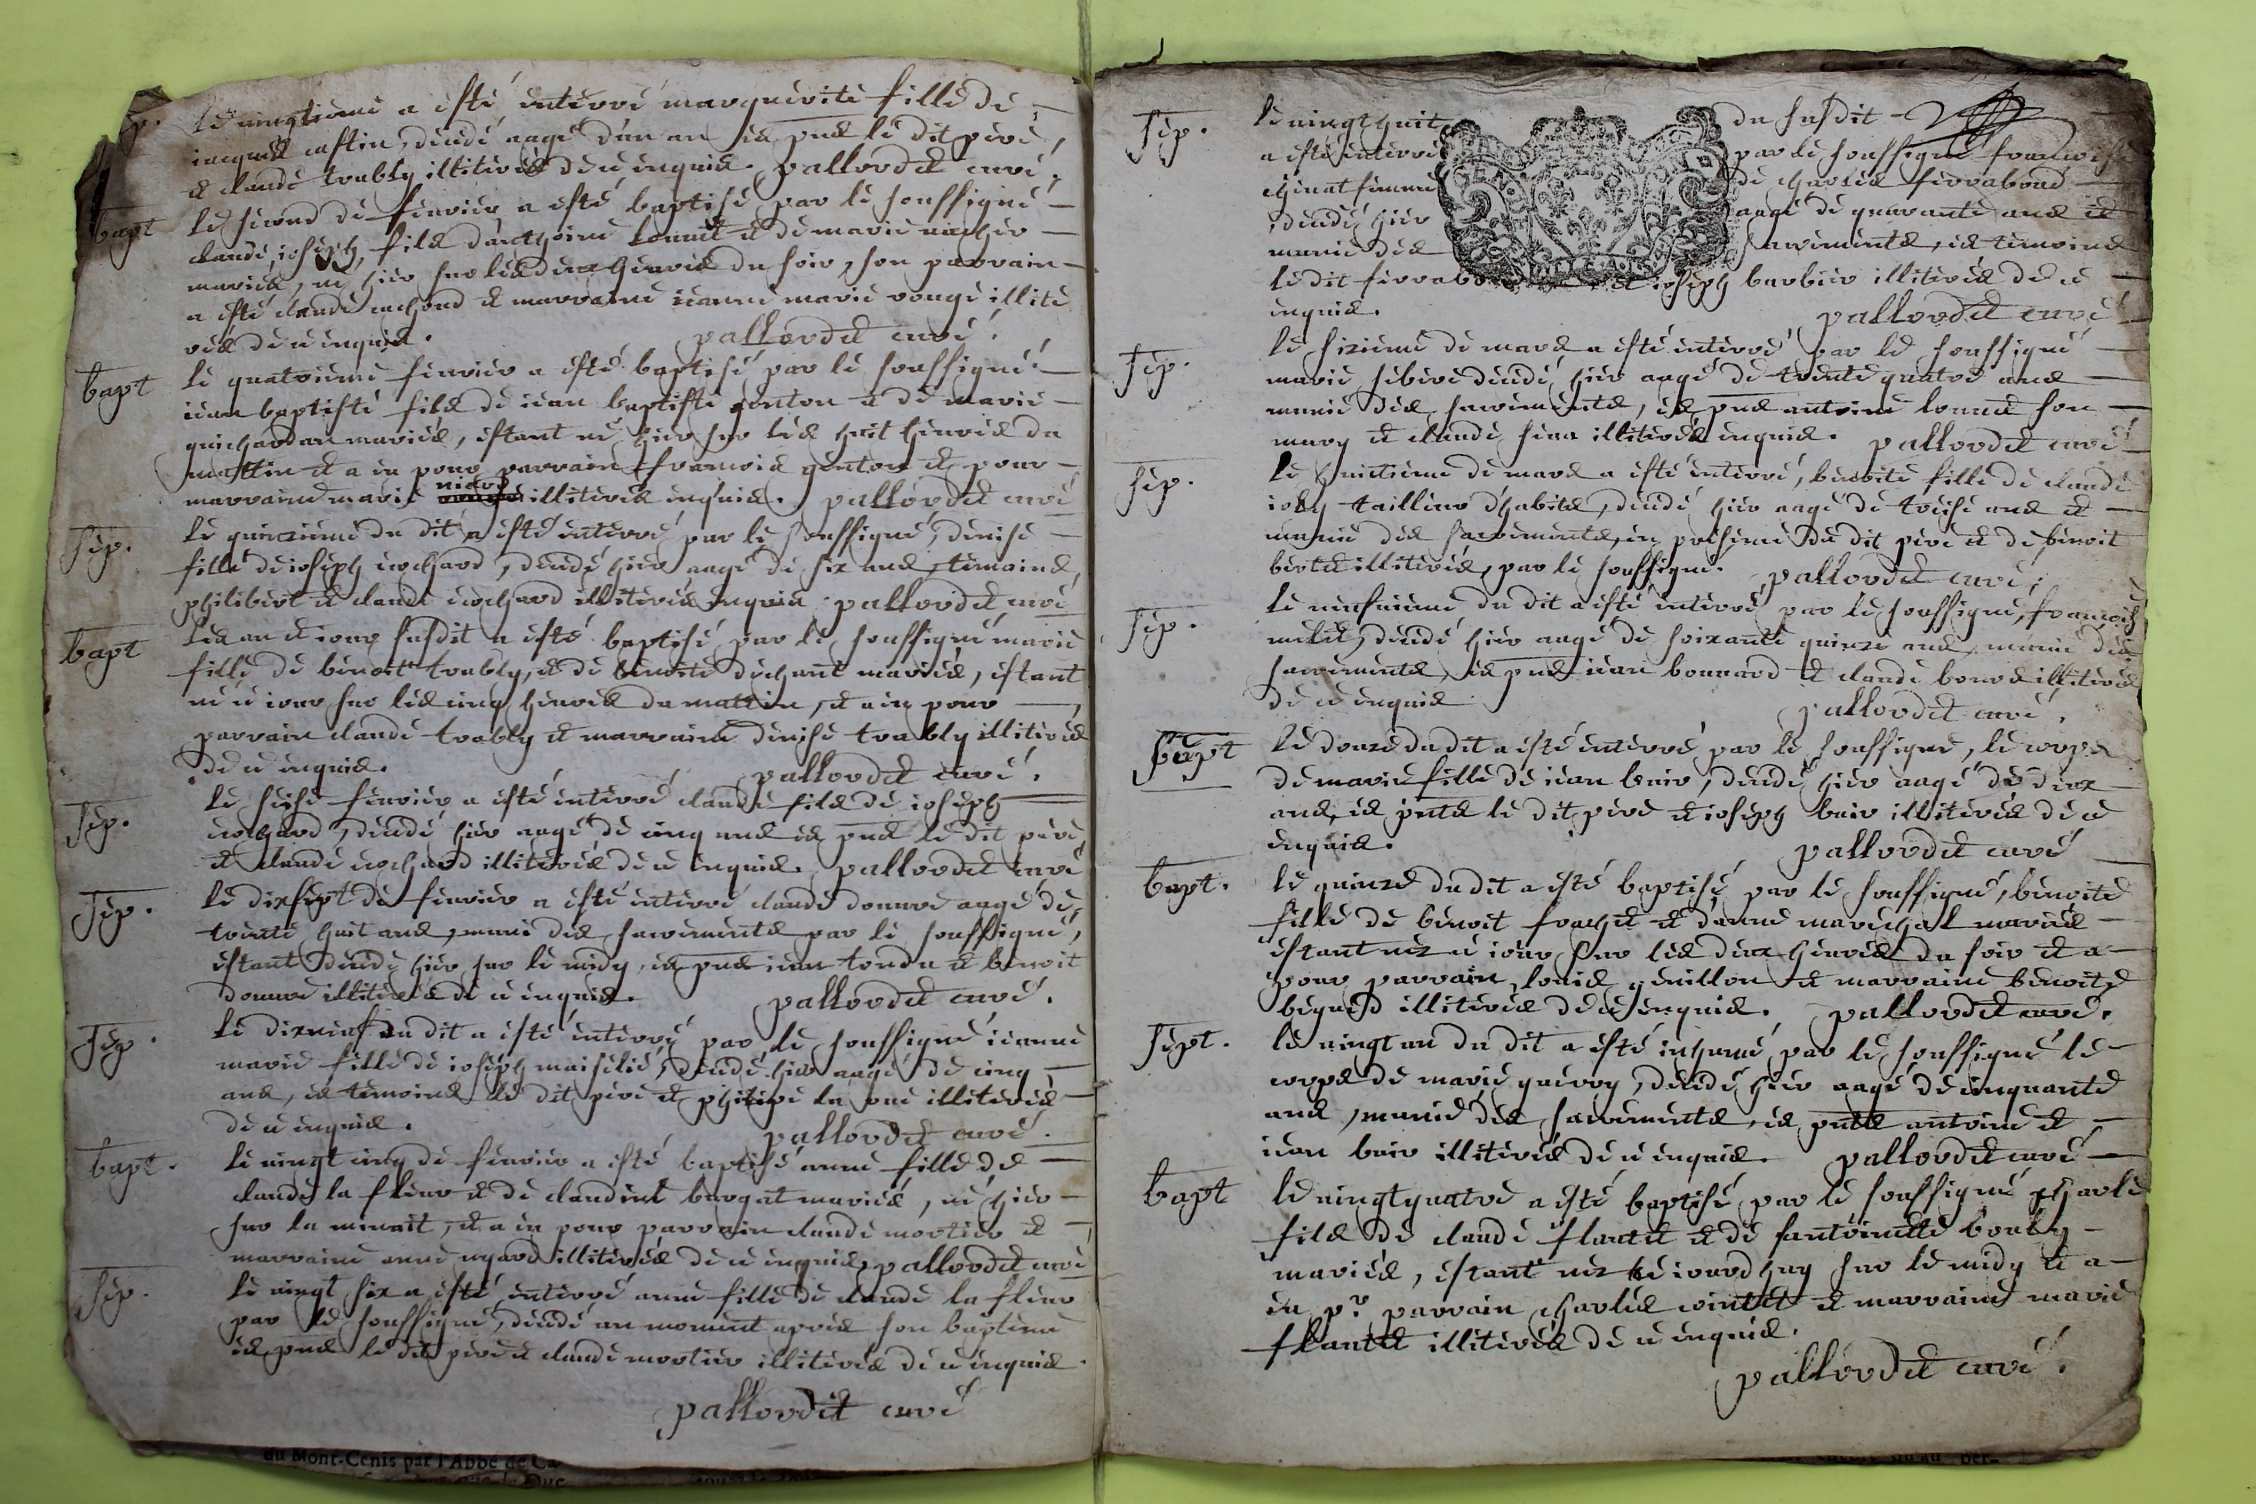 Sep.
le vingtieme a esté enterré marguerite fille de
iacques castin, decedé aagé d'un an es pnce le dit pere,
et claude trably illiterés de ce enquis. pallordet curé.
bapt
le second de fevrier a esté baptisé par le soussigné
claude ioseph, fils d'anthoine
mariés, né hier sur les deux heures du soir, son parrain
a esté claude cochard et marraine ieanne marie rouge illite
rés de ce enquis. pallordet curé.
bapt
le quatrieme fevrier a esté baptisé par le soussigné
iean baptiste fils de iean baptiste genton et de marie
guichardan mariés, estant né hier sur les huit heures du
mattin et a eu pour parrain francois genton et pour
marraine marie illiterés enquis. pallordet curé
Sep.
le quinzieme du dit a esté enterré par le soussigné, denise
fille de ioseph cochard, decedé hier aagé de six ans, temoins,
philibert et claude cochard illiterés enquis pallordet curé
bapt
les an et iour susdit a esté baptisé par le soussigné marie
fille de benoit trably, et de benoite dechant mariés, estant
né ce iour sur les cinq heures du mattin, et a eu pour
parrain claude trably et marraine denise trably illiterés
de ce enquis. pallordet curé.
Sep.
le seise fevrier a esté enterré claude fils de ioseph
cochard, decedé hier aagé de cinq ans es pnce le dit pere,
et claude cochard illiterés de ce enquis. pallordet curé
Sep.
le dixsept de fevrier a esté enterré claude donure aagé de
trente huit ans, muni des sacrements par le soussigné,
estant decedé hier sur le midy, es pnce iean tondu et benoit
donure illiterés de ce enquis. pallordet curé.
Sep.
le dixneuf du dit a esté enterré par le soussigné ieanne
marie fille de ioseph maiselié, decedé hier aagé de cinq
ans, es temoins le dit pere et philipe illiterés
de ce enquis. pallordet curé.
bapt.
le vingt cinq de fevrier a esté baptisé anne fille de
claude la fleur et de claudine bargat mariés, né hier
sur la minuit, et a eu pour parrain claude mortier et
marraine anne illiterés de ce enquis, pallordet curé
Sep.
le vingt six a esté enterré anne fille de claude la fleur
par le soussigné, decedé un moment apres son bapteme
es pnce le dit pere et claude mortier illiterés de ce enquis.
pallordet curé
Sep.
le vingt huit du susdit
a esté enterré par le soussigné francoise
chinat femme de charles ferrabond
, decedé hier aagé de quarante ans et
munie des sacrements, es temoins
le dit et ioseph barbier illiterés de ce
enquis. pallordet curé
Sep.
le sixieme de mars a esté enterré par le soussigné
marie decedé hier aagé de trente quatre ans
munie des sacrements, es pnce antoine son
mary et claude illiterés enquis. pallordet curé
Sep.
le huictieme de mars a esté enterré, benoite fille de claude
ioly tailleur d'habits, decedé hier aagé de treise ans et
munie des sacrements, en presence du dit pere et de benoit
illiterés, par le soussigné. pallordet curé.
Sep.
le neufvieme du dit a esté enterré par le soussigné, francois
decedé hier aagé de soixante quinze ans, munie des
sacrements, es pnce iean bonnard et claude illiterés
de ce enquis pallordet curé.
Sept
le douze du dit a esté enterré par le soussigné, le corps
de marie fille de iean buir, decedé hier aagé de deux
ans, es pnts le dit pere et ioseph buir illiterés de ce
enquis. pallordet curé
bapt.
le quinze du dit a esté baptisé par le soussigné, benoite
fille de benoit frachet et d'anne marechal mariés
estant nez ce iour sur les deux heures du soir et a
pour parrain louis genillon et marraine benoite
beguet illiterés de ce enquis. pallordet curé.
Sept.
le vingt un du dit a esté inhumé par le soussigné le
corps de marie guerry, decedé hier aagé de cinquante
ans, munie des sacrements, es pnts antoine et
iean buir illiterés de ce enquis. pallordet curé
bapt
le vingtquatre a esté baptisé par le soussigné charle
fils de claude flantet et de antoinette
mariés, estant nez ce iourdhuy sur le midy et a
eu pr parrain charles et marraine marie
flantet illiterés de ce enquis.
pallordet curé.
du Mont-Cenis par l'Abbé de Ca